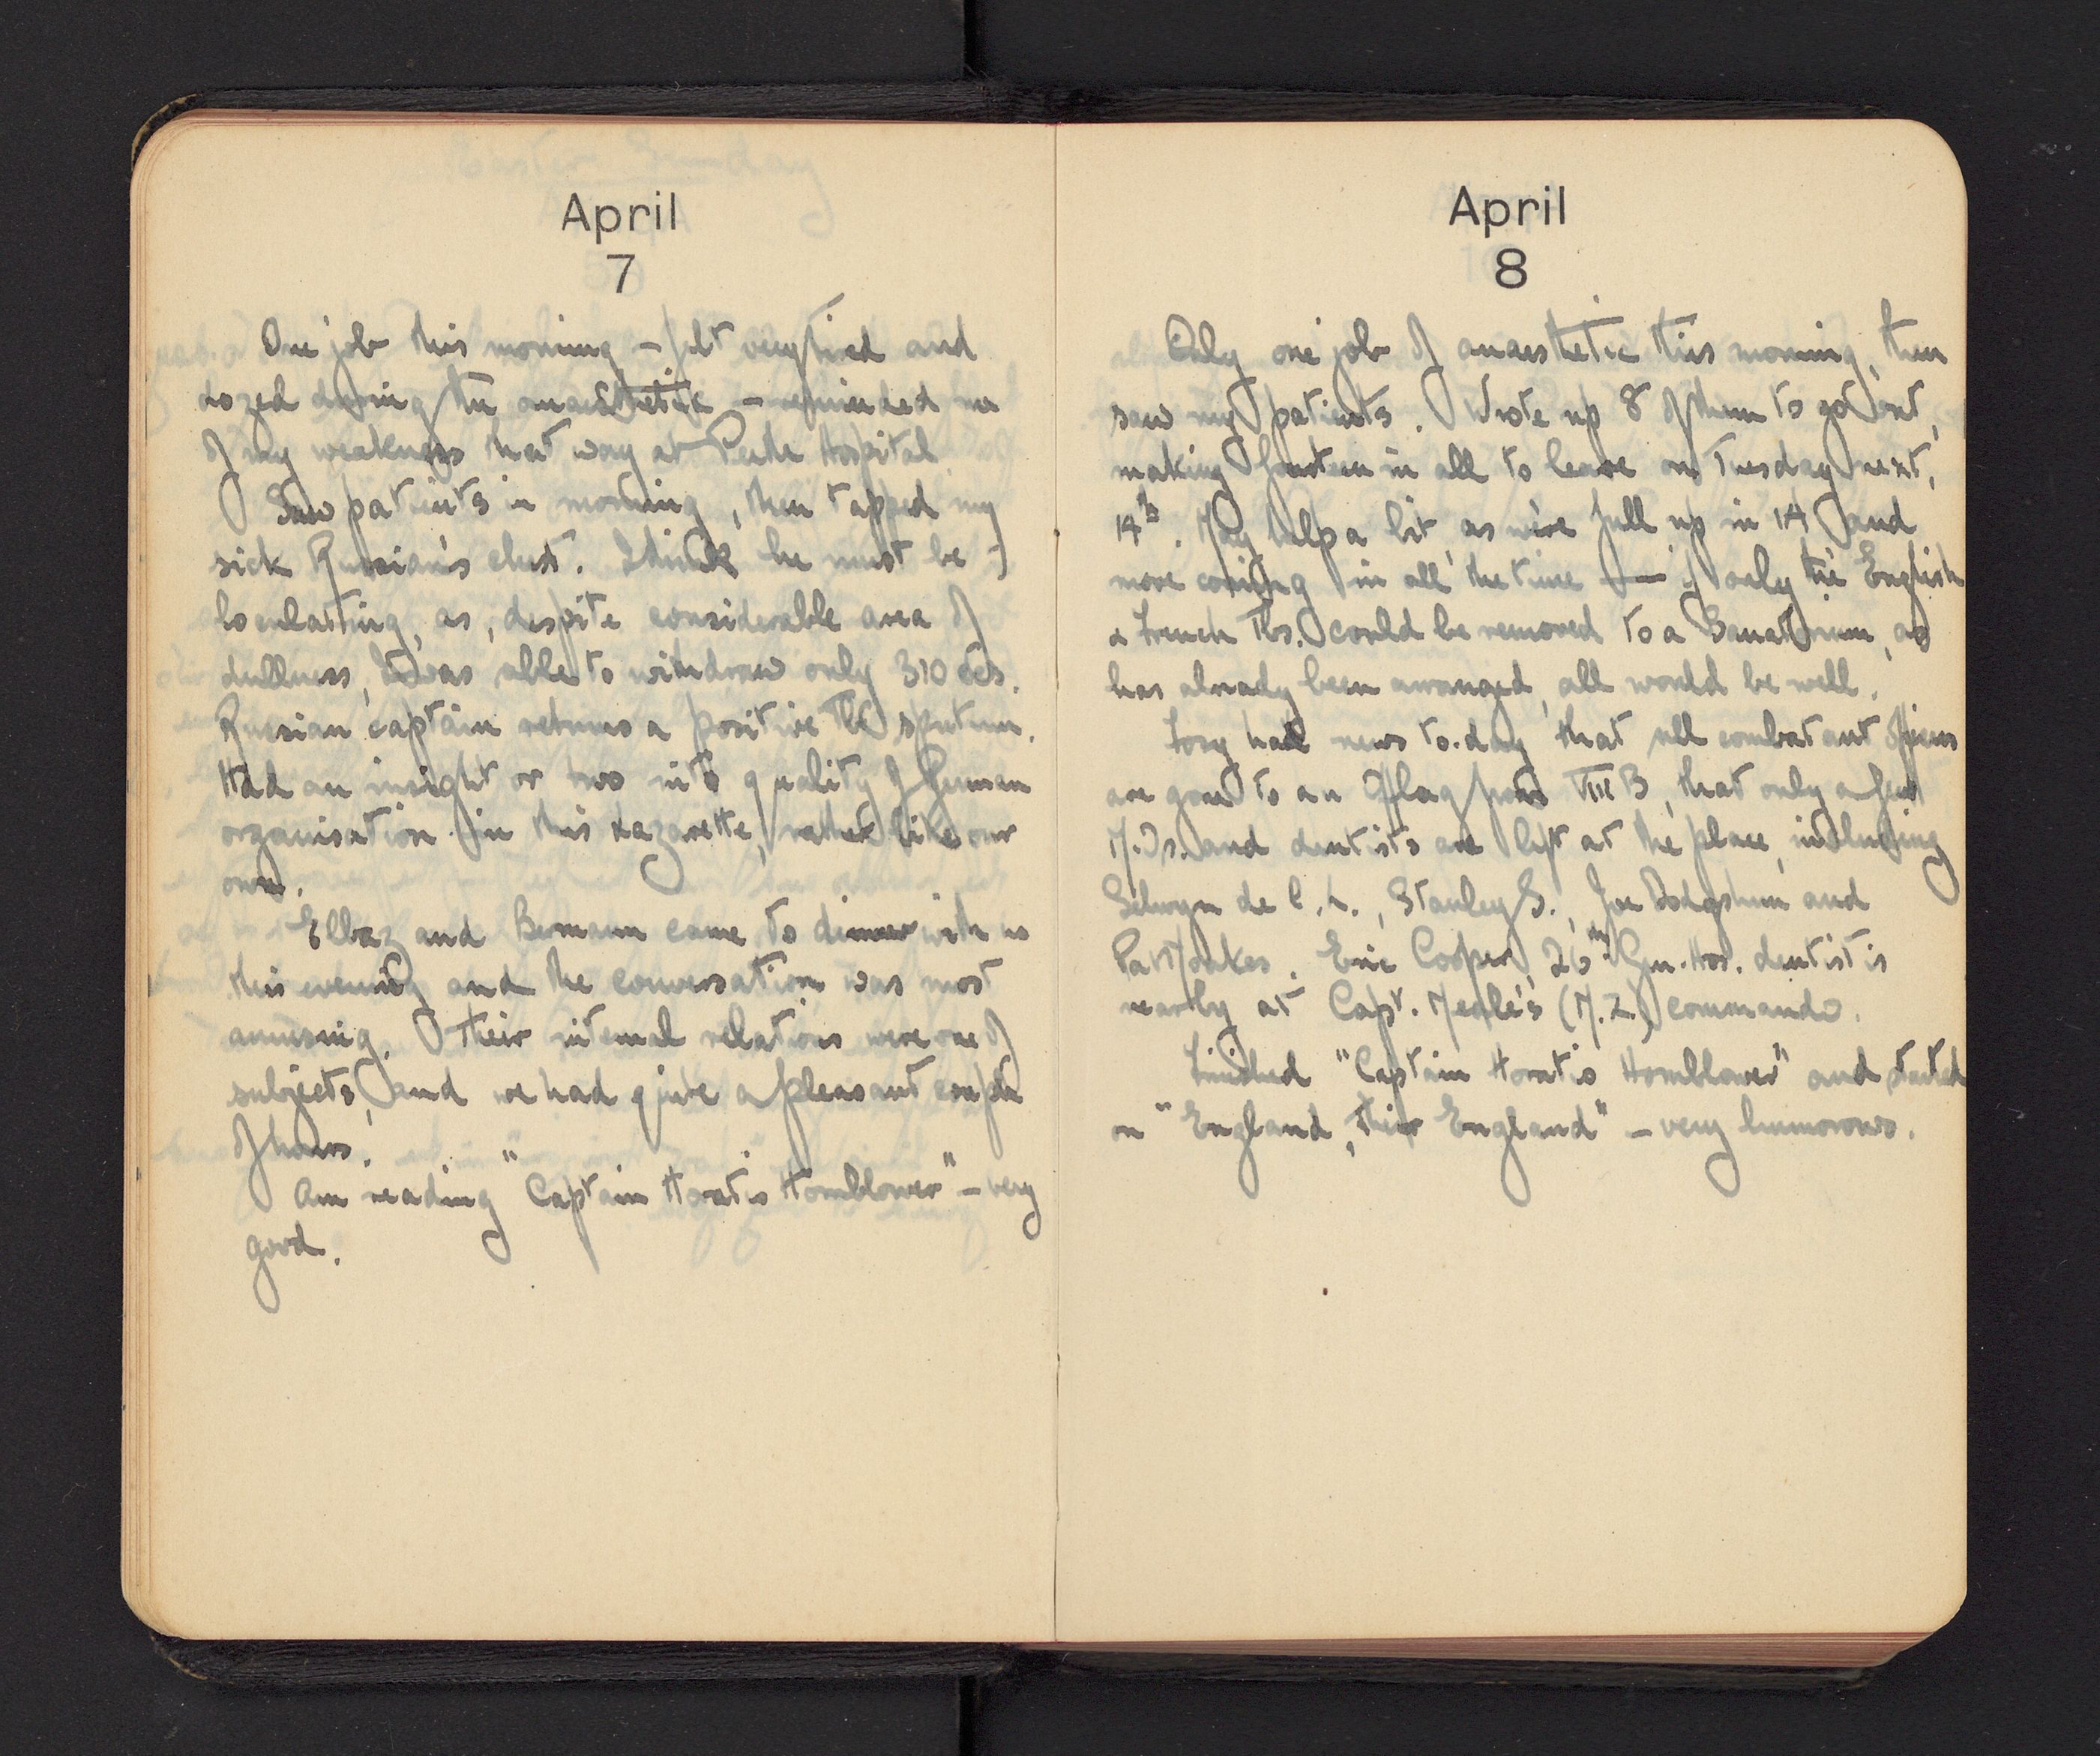 April
7
One job this morning – felt very tired and
dozed during the anaesthetic – reminded me
of my weakness that way at Perth Hospital.
Saw patients in morning, then tapped my
sick Russian's chest. I think he must be
loculating, as, despite considerable area of
dullness, I was able to withdraw only 310 ccs.
Russian captain returns a positive TB sputum.
Had an insight or two into quality of German
organisation in this Lazarette, rather like our
own.
Elbaz and Bermann came to dinner with us
this evening and the conversation was most
amusing. Their internal relations were one of
subjects, and we had quite a pleasant couple
of hours.
Am reading "Captain Horatio Hornblower" – very
good.
April
8
Only one job of anaesthetic this morning, then
saw my patients. Wrote up 8 of them to go out,
making fourteen in all to leave on Tuesday next,
14th. May help a bit, as we're full up in 14 and
more coming in all the time — if only the English
& French Tbs. could be removed to a Sanatorium, as
has already been arranged, all would be well.
had news to-day that all combatant officers
are gone to an Oflag from VIIIB, that only a few
M.Os. and dentists are left at the place, including
Selwyn de C. L., Stanley S., Joe Dodgshun and
Pat Foakes. Eric Cooper, 26th Gen. Hos. dentist is
nearby at Capt. Neale's (N.Z.) commando.
Finished "Captain Horatio Hornblower" and started
on "England, Their England" – very humorous.